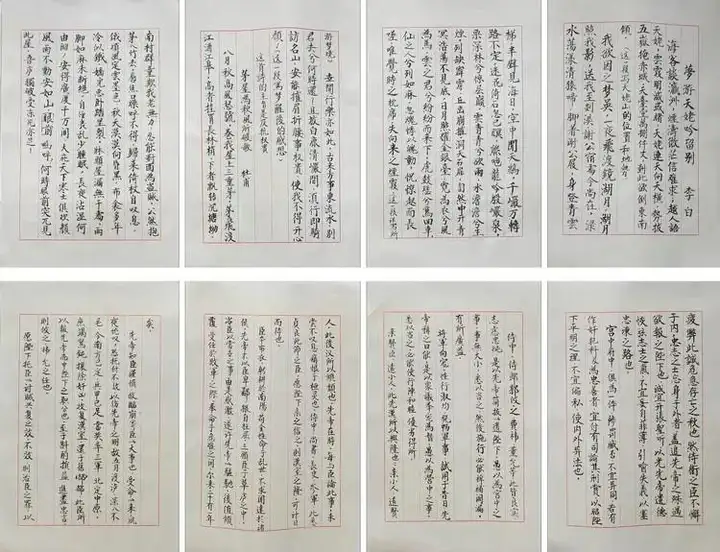 夢游天姥吟留别 李白
海客談瀛洲,煙濤微茫信難求,越人語
天姥,雲霞明滅或可睹。天姥連天向天横,勢拔
五嶽掩赤城。天台四萬八千丈,對此欲倒東南
傾。(這一段寫天姥山的位置和地勢)
我欲因之夢吳越,一夜飛渡鏡湖月。湖月
照我影,送我至剡溪。謝公宿處今尚在,淥
水蕩漾清猿啼。脚着謝公屐,身登青雲
梯。半壁見海日,空中聞天鷄。千岩萬轉
路不定,迷花倚石忽已暝。熊咆龍吟殷岩泉,
栗深林兮驚層巔。雲青青兮欲雨,水澹澹兮生
煙。列缺霹靂,丘巒崩摧。洞天石扉,訇然中開。青
冥浩蕩不見底,日月照耀金銀臺。霓為衣兮風
為馬,雲之君兮紛紛而來下。虎鼓瑟兮鸞回車,
仙之人兮列如麻。忽魂悸以魄動,怳驚起而長
嗟。唯覺時之枕席,失向來之煙霞。(這一段寫所
游夢境)世間行樂亦如此,古來万事東流水。别
君去兮何時還?且放白鹿青崖間,須行即騎
訪名山。安能摧眉折腰事權貴,使我不得開心
顏!(這一段寫夢醒後的感想)
這首詩的主旨是反抗權貴
茅屋為秋風所破歌 杜甫
八月秋高風怒號,卷我屋上三重茅。茅飛渡
江灑江郊,高者挂罥長林梢,下者飄轉沉塘坳。
南村群童欺我老無力,忍能對面為盗賊。公然抱
茅入竹去,唇焦口燥呼不得,歸來倚杖自嘆息。
俄頃風定雲墨色,秋天漠漠向昏黑。布衾多年
冷似鐵,嬌兒惡卧踏裏裂。床頭屋漏無干處,雨
脚如麻未斷絕。自經喪亂少睡眠,長夜沾濕何
由徹!安得廣厦千万間,大庇天下寒士俱歡顏,
風雨不動安如山。嗚呼!何時眼前突兀見
此屋,吾廬獨破受凍死亦足!
疲弊,此誠危急存亡之秋也。然侍衛之臣不懈
于内,忠志之士忘身于外者,蓋追先帝之殊遇,
欲報之陛下也。誠宜開張聖聽,以光先帝遺德,
恢弘志士之氣,不宜妄自菲薄,引喻失義,以塞
忠諫之路也。
宮中府中,俱為一體,陟罰臧否,不宜異同。若有
作奸犯科及為忠善者,宜付有司論其刑賞,以昭陛
下平明之理,不宜偏私,使内外异法也。
侍中、侍郎郭攸之、費禕、董允等,此皆良實,
志慮忠純,是以先帝簡拔以遺陛下。愚以為宮中之
事,事無大小,悉以咨之,然後施行,必能裨補闕漏,
有所廣益。
將軍向寵,性行淑均,曉暢軍事,試用于昔日,先
帝稱之曰能,是以衆議舉寵為督。愚以為營中之事,
悉以咨之,必能使行陣和睦,優劣得所。
親賢臣,遠小人,此先漢所以興隆也;親小人,遠賢
人,此後漢所以傾頹也。先帝在時,每與臣論此事,未
嘗不嘆息痛恨于桓靈也。侍中、尚書、長史、參軍,此悉
貞良死節之臣,願陛下親之信之,則漢室之隆,可計日
而待也。
臣本布衣,躬耕於南陽,苟全性命于亂世,不求聞達於諸
侯。先帝不以臣卑鄙,猥自枉屈,三顧臣于草廬之中,
咨臣以當世之事,由是感激,遂許先帝以驅馳。後值傾
覆,受任於敗軍之際,奉命于危難之間,尔來二十有一年
矣。
先帝知臣謹慎,故臨崩寄臣以大事也。受命以來,夙
夜憂嘆,恐托付不效,以傷先帝之明,故五月渡瀘,深入不
毛。今南方已定,兵甲已足,當獎率三軍,北定中原,
庶竭駑鈍,攘除奸凶,興復漢室,還于舊都。此臣所
以報先帝而忠陛下之職分也。至于斟酌損益,進盡忠言,
則攸之、禕、允之任也。
願陛下托臣以討賊興復之效,不效,則治臣之罪,以